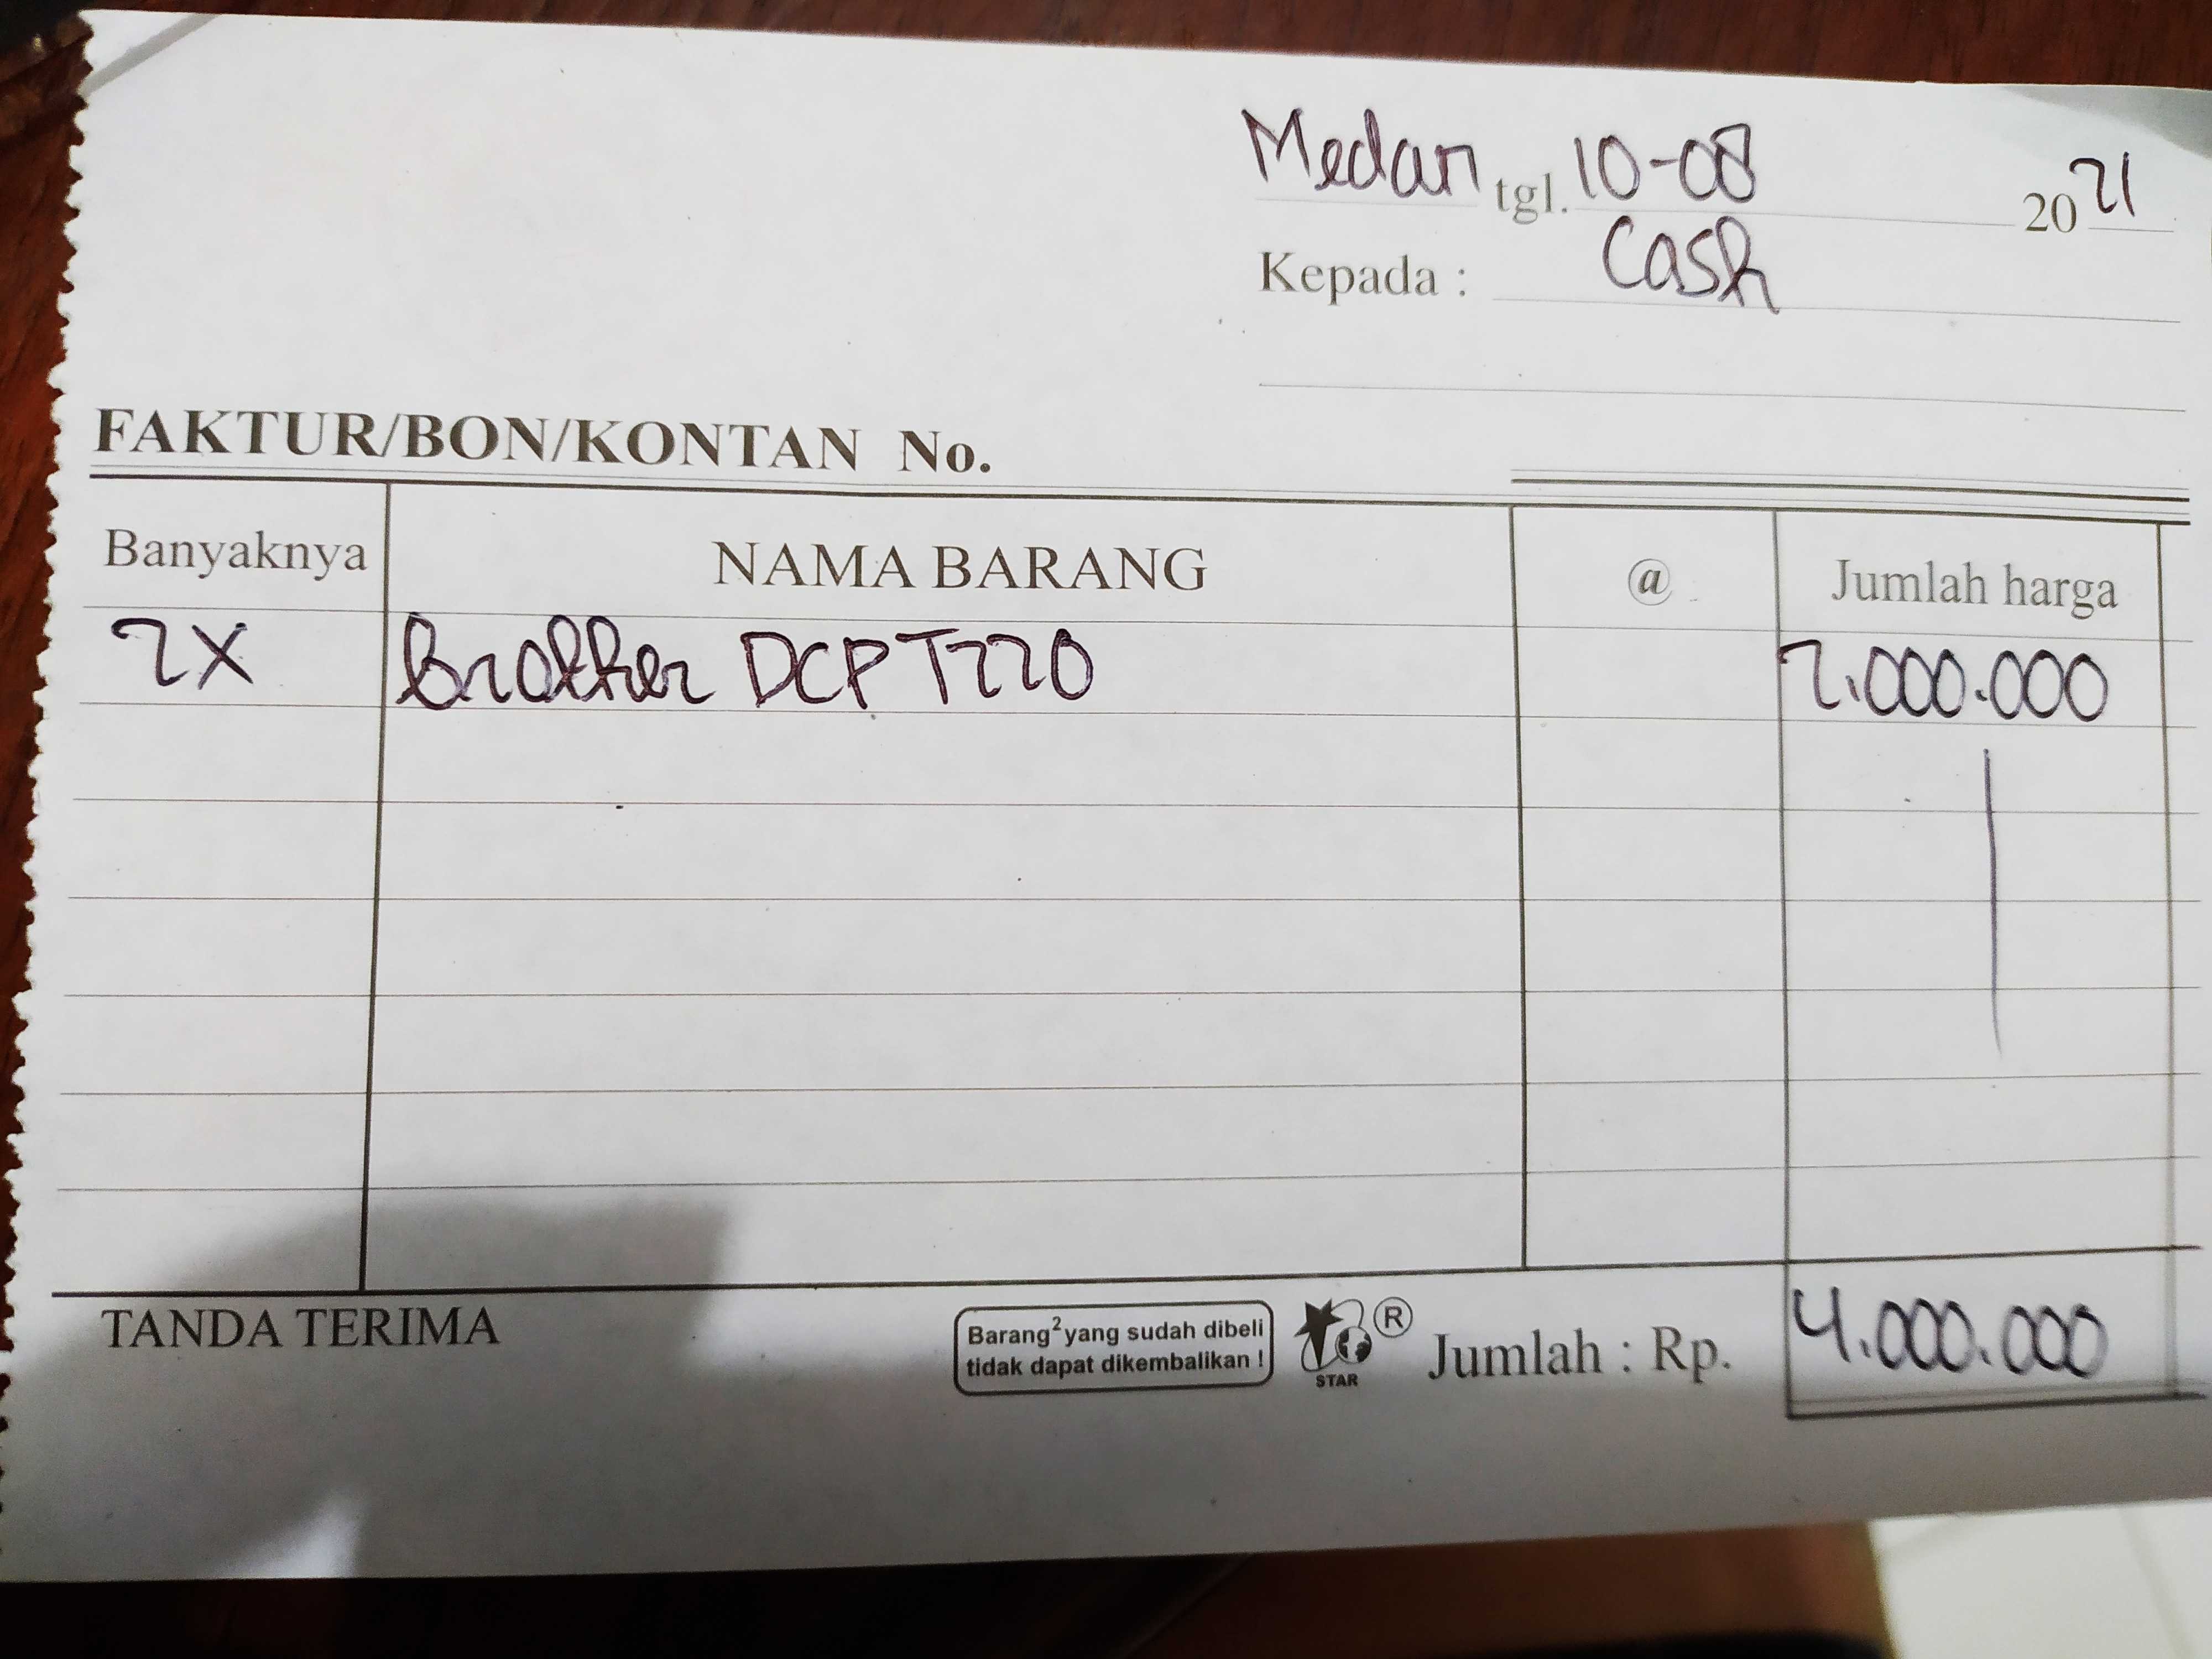 Medan tgl. 10-08 2021
Kepada : Cash
FAKTUR/BON/KONTAN No.
Banyaknya NAMA BARANG @ Jumlah harga
2X Brother DCP T220 2.000.000
TANDA TERIMA
Barang² yang sudah dibeli
tidak dapat dikembalikan !
STAR
®
Jumlah : Rp. 4.000.000